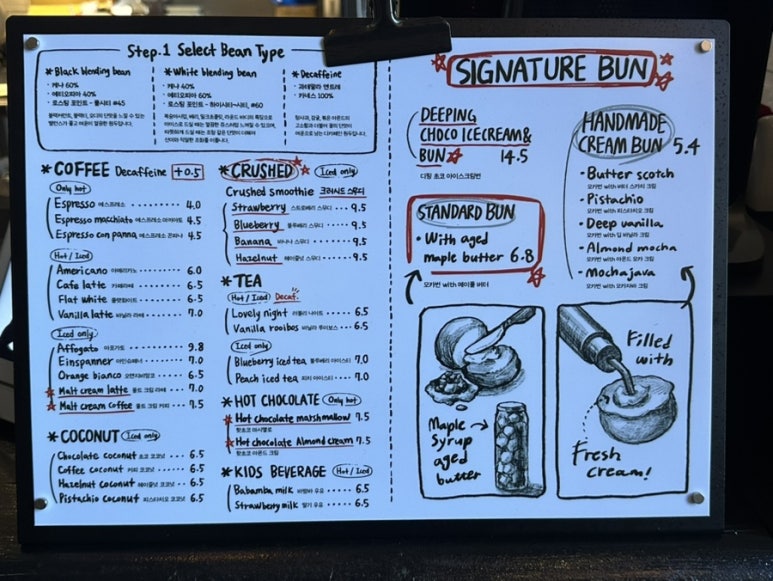 Step.1 Select Bean Type
*Black blending bean
· 케냐 60%
· 에티오피아 40%
· 로스팅 포인트 - 풀시티 #45
*White blending bean
· 케냐 40%
· 에티오피아 60%
· 로스팅 포인트 - 하이시티~시티, #60
*Decaffeine
· 과테말라 앤트레
· 카네스 100%
*COFFEE Decaffeine +0.5
Only hot
Espresso 에스프레소 ···· 4.0
Espresso macchiato 에스프레소 마끼아또 4.5
Espresso con panna 에스프레소 콘파나 ·· 4.5
Hot / Iced
Americano 아메리카노 ···· 6.0
Cafe latte 카페라떼 ···· 6.5
Flat white 플랫화이트 ···· 6.5
Vanilla latte 바닐라 라떼 ···· 7.0
Iced only
Affogato 아포가토 ···· 9.8
Einspanner 아인슈페너 ···· 7.0
Orange bianco 오렌지비앙코 ···· 6.5
Malt cream latte 몰트 크림 라떼 ·· 7.0
Malt cream Coffee 몰트 크림 커피 ··· 7.5
*COCONUT Iced only
Chocolate coconut 초코 코코넛 ··· 6.5
Coffee coconut 커피 코코넛 ···· 6.5
Hazelnut coconut 헤이즐넛 코코넛 ·· 6.5
Pistachio coconut 피스타치오 코코넛 · 6.5
*CRUSHED Iced only
Crushed smoothie 크러쉬드 스무디
Strawberry 스트로베리 스무디 ··· 9.5
Blueberry 블루베리 스무디 ···· 9.5
Banana 바나나 스무디 ···· 9.5
Hazelnut 헤이즐넛 스무디 ···· 9.5
*TEA
Hot / Iced Decaf.
Lovely night 러블리 나이트 ···· 6.5
Vanilla rooibos 바닐라 루이보스 ·· 6.5
Iced only
Blueberry iced tea 블루베리 아이스티 7.0
Peach iced tea 피치 아이스티 ··· 7.0
*HOT CHOCOLATE Only hot
Hot chocolate marshmallow 7.5
핫초코 마시멜로
Hot chocolate Almond cream 7.5
핫초코 아몬드 크림
*KIDS BEVERAGE Hot / Iced
Babamba milk 바밤바 우유 ····· 6.5
Strawberry milk 딸기 우유 ···· 6.5
SIGNATURE BUN
DEEPING
CHOCO ICECREAM&
BUN 14.5
디핑 초코 아이스크림번
STANDARD BUN
· With aged
maple butter 6.8
모카번 with 메이플 버터
HANDMADE
CREAM BUN 5.4
· Butter scotch
모카번 with 버터 스카치 크림
· Pistachio
모카번 with 피스타치오 크림
· Deep vanilla
모카번 with 딥 바닐라 크림
· Almond mocha
모카번 with 아몬드 모카 크림
· Mocha java
모카번 with 모카자바 크림
Maple
Syrup
aged
butter
Filled
with
Fresh
cream!